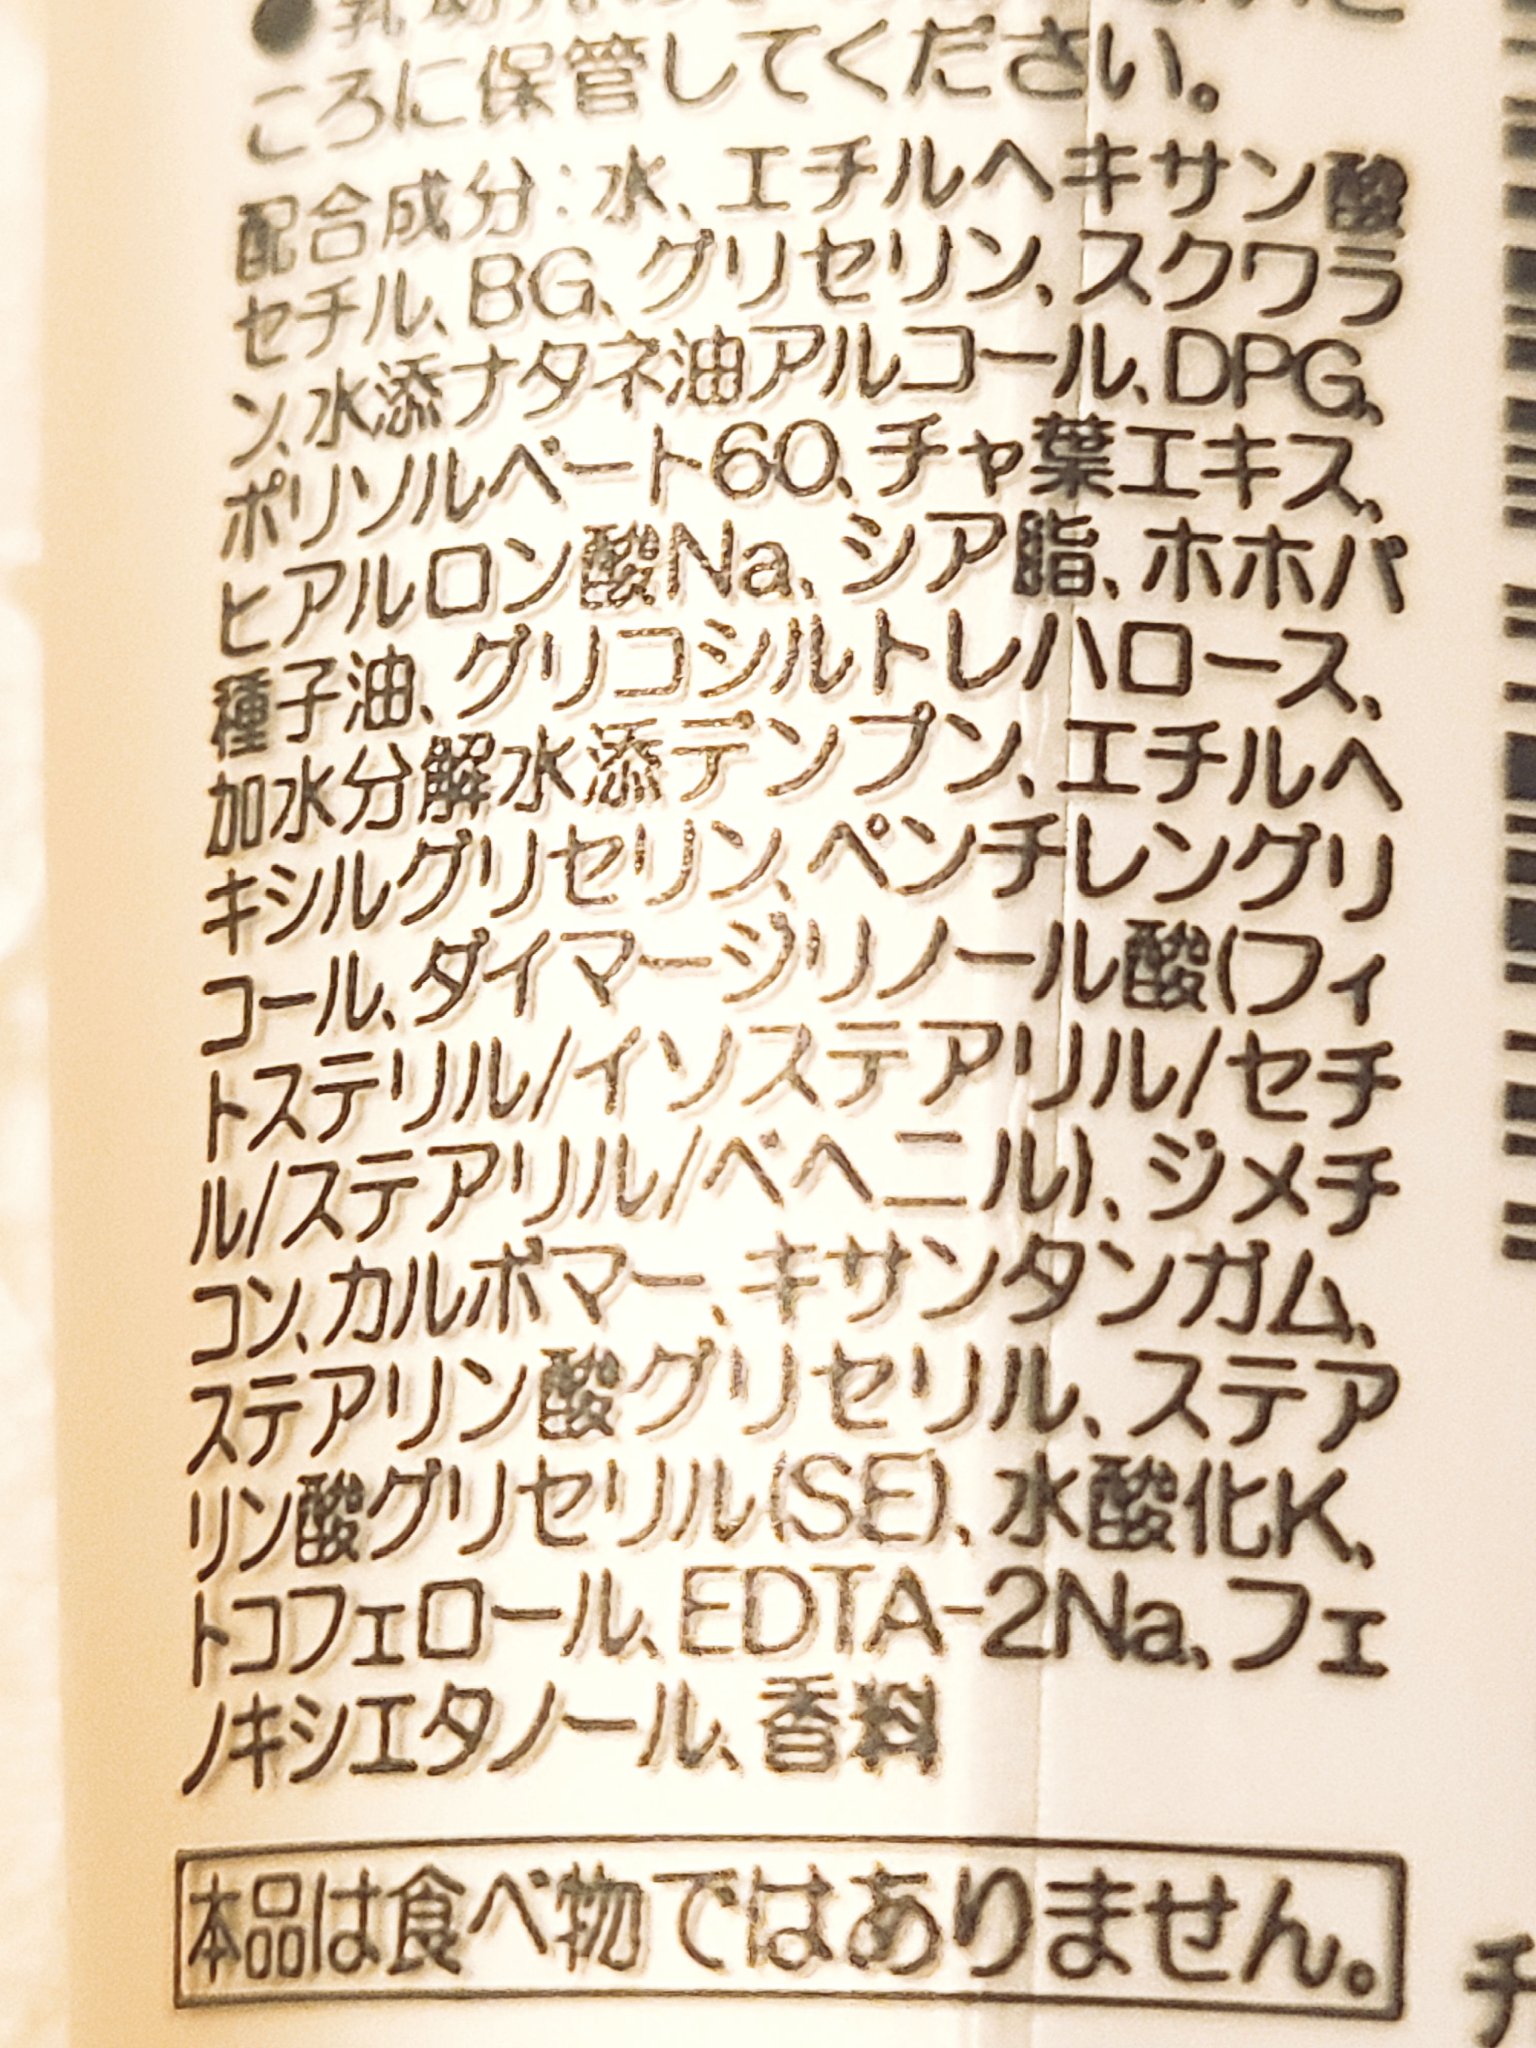 ころに保管してください。
配合成分：水、エチルヘキサン酸
セチル、BG、グリセリン、スクワラ
ン、水添ナタネ油アルコール、DPG、
ポリソルベート60、チャ葉エキス、
ヒアルロン酸Na、シア脂、ホホバ
種子油、グリコシルトレハロース、
加水分解水添デンプン、エチルヘ
キシルグリセリン、ペンチレングリ
コール、ダイマージリノール酸(フィ
トステリル/イソステアリル/セチ
ル/ステアリル/ベヘニル)、ジメチ
コン、カルボマー、キサンタンガム、
ステアリン酸グリセリル、ステア
リン酸グリセリル(SE)、水酸化K、
トコフェロール、EDTA-2Na、フェ
ノキシエタノール、香料
本品は食べ物ではありません。
チ